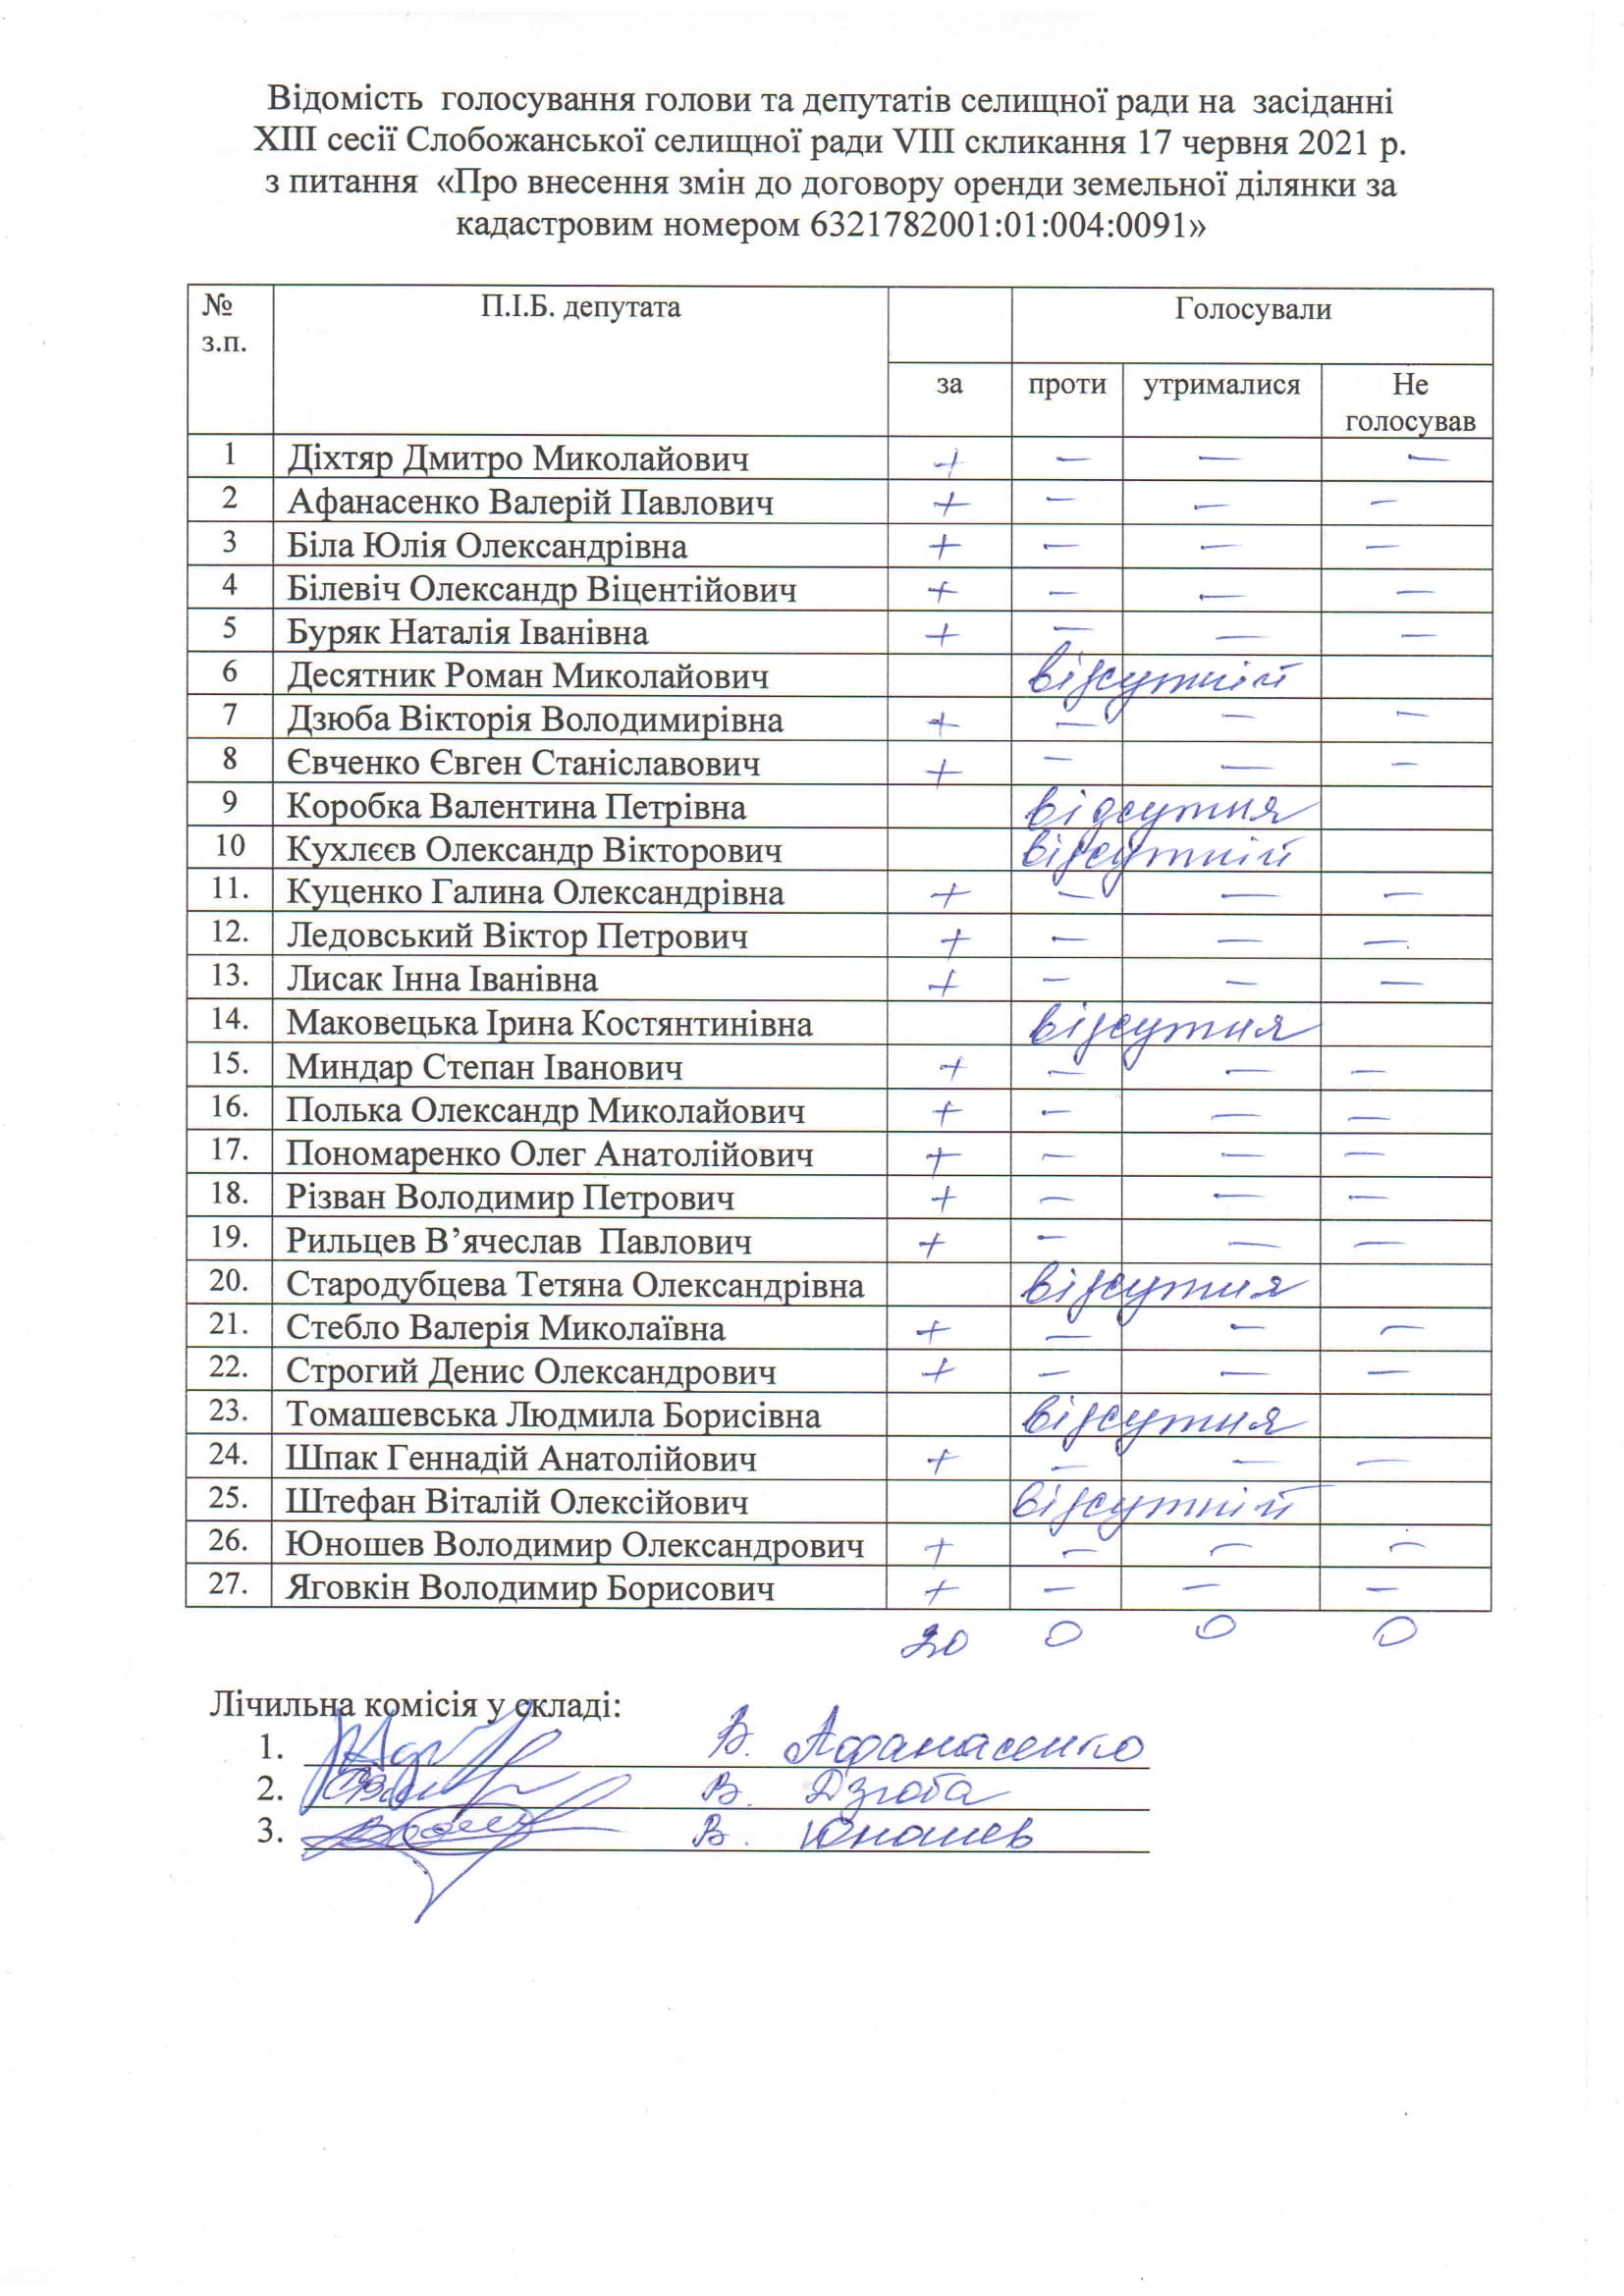 Відомість голосування голови та депутатів селищної ради на засіданні
XIII сесії Слобожанської селищної ради VIII скликання 17 червня 2021 р.
з питання «Про внесення змін до договору оренди земельної ділянки за
кадастровим номером 6321782001:01:004:0091»
№ з.п. П.І.Б. депутата Голосували
за проти утрималися Не голосував
1 Діхтяр Дмитро Миколайович + — — —
2 Афанасенко Валерій Павлович + — — —
3 Біла Юлія Олександрівна + — — —
4 Білевіч Олександр Віцентійович + — — —
5 Буряк Наталія Іванівна + — — —
6 Десятник Роман Миколайович відсутній
7 Дзюба Вікторія Володимирівна + — — —
8 Євченко Євген Станіславович + — — —
9 Коробка Валентина Петрівна відсутня
10 Кухлєєв Олександр Вікторович відсутній
11. Куценко Галина Олександрівна + — — —
12. Ледовський Віктор Петрович + — — —
13. Лисак Інна Іванівна + — — —
14. Маковецька Ірина Костянтинівна відсутня
15. Миндар Степан Іванович + — — —
16. Полька Олександр Миколайович + — — —
17. Пономаренко Олег Анатолійович + — — —
18. Різван Володимир Петрович + — — —
19. Рильцев В’ячеслав Павлович + — — —
20. Стародубцева Тетяна Олександрівна відсутня
21. Стебло Валерія Миколаївна + — — —
22. Строгий Денис Олександрович + — — —
23. Томашевська Людмила Борисівна відсутня
24. Шпак Геннадій Анатолійович + — — —
25. Штефан Віталій Олексійович відсутній
26. Юношев Володимир Олександрович + — — —
27. Яговкін Володимир Борисович + — — —
20 0 0 0
Лічильна комісія у складі:
1. В. Афанасенко
2. В. Дзюба
3. В. Юношев